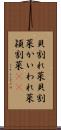 貝割れ菜貝割
菜かいわれ菜
穎割菜